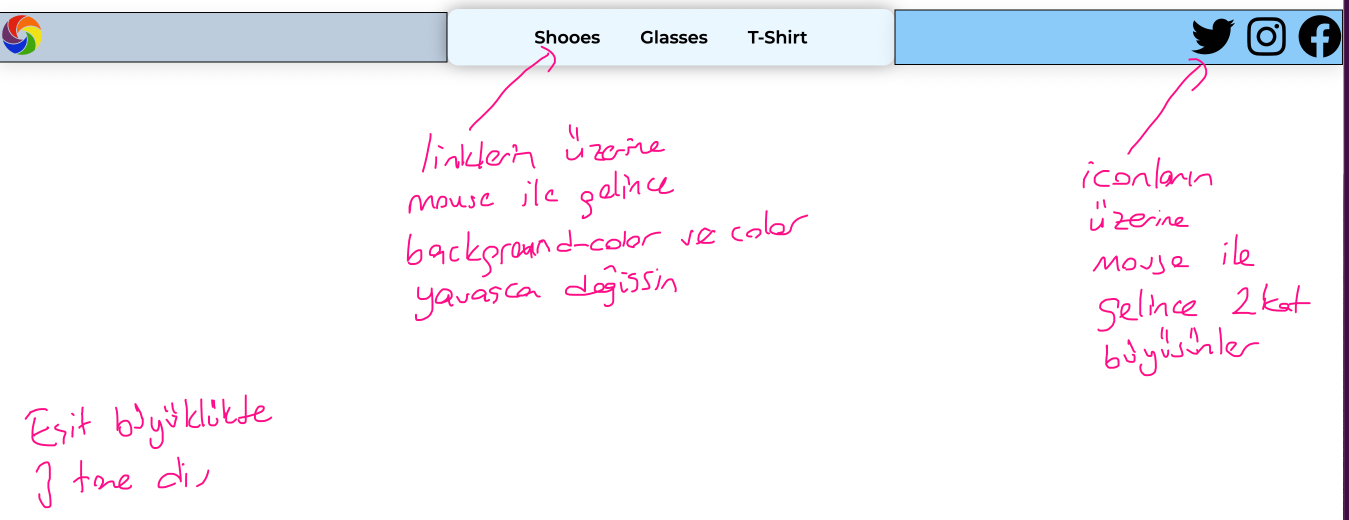 Shooes Glasses T-Shirt
linklerin üzerine
mouse ile gelince
background-color ve color
yavasca değissin
iconların
üzerine
mouse ile
gelince 2 kat
büyüsünler
Eşit büyüklükte
3 tane div